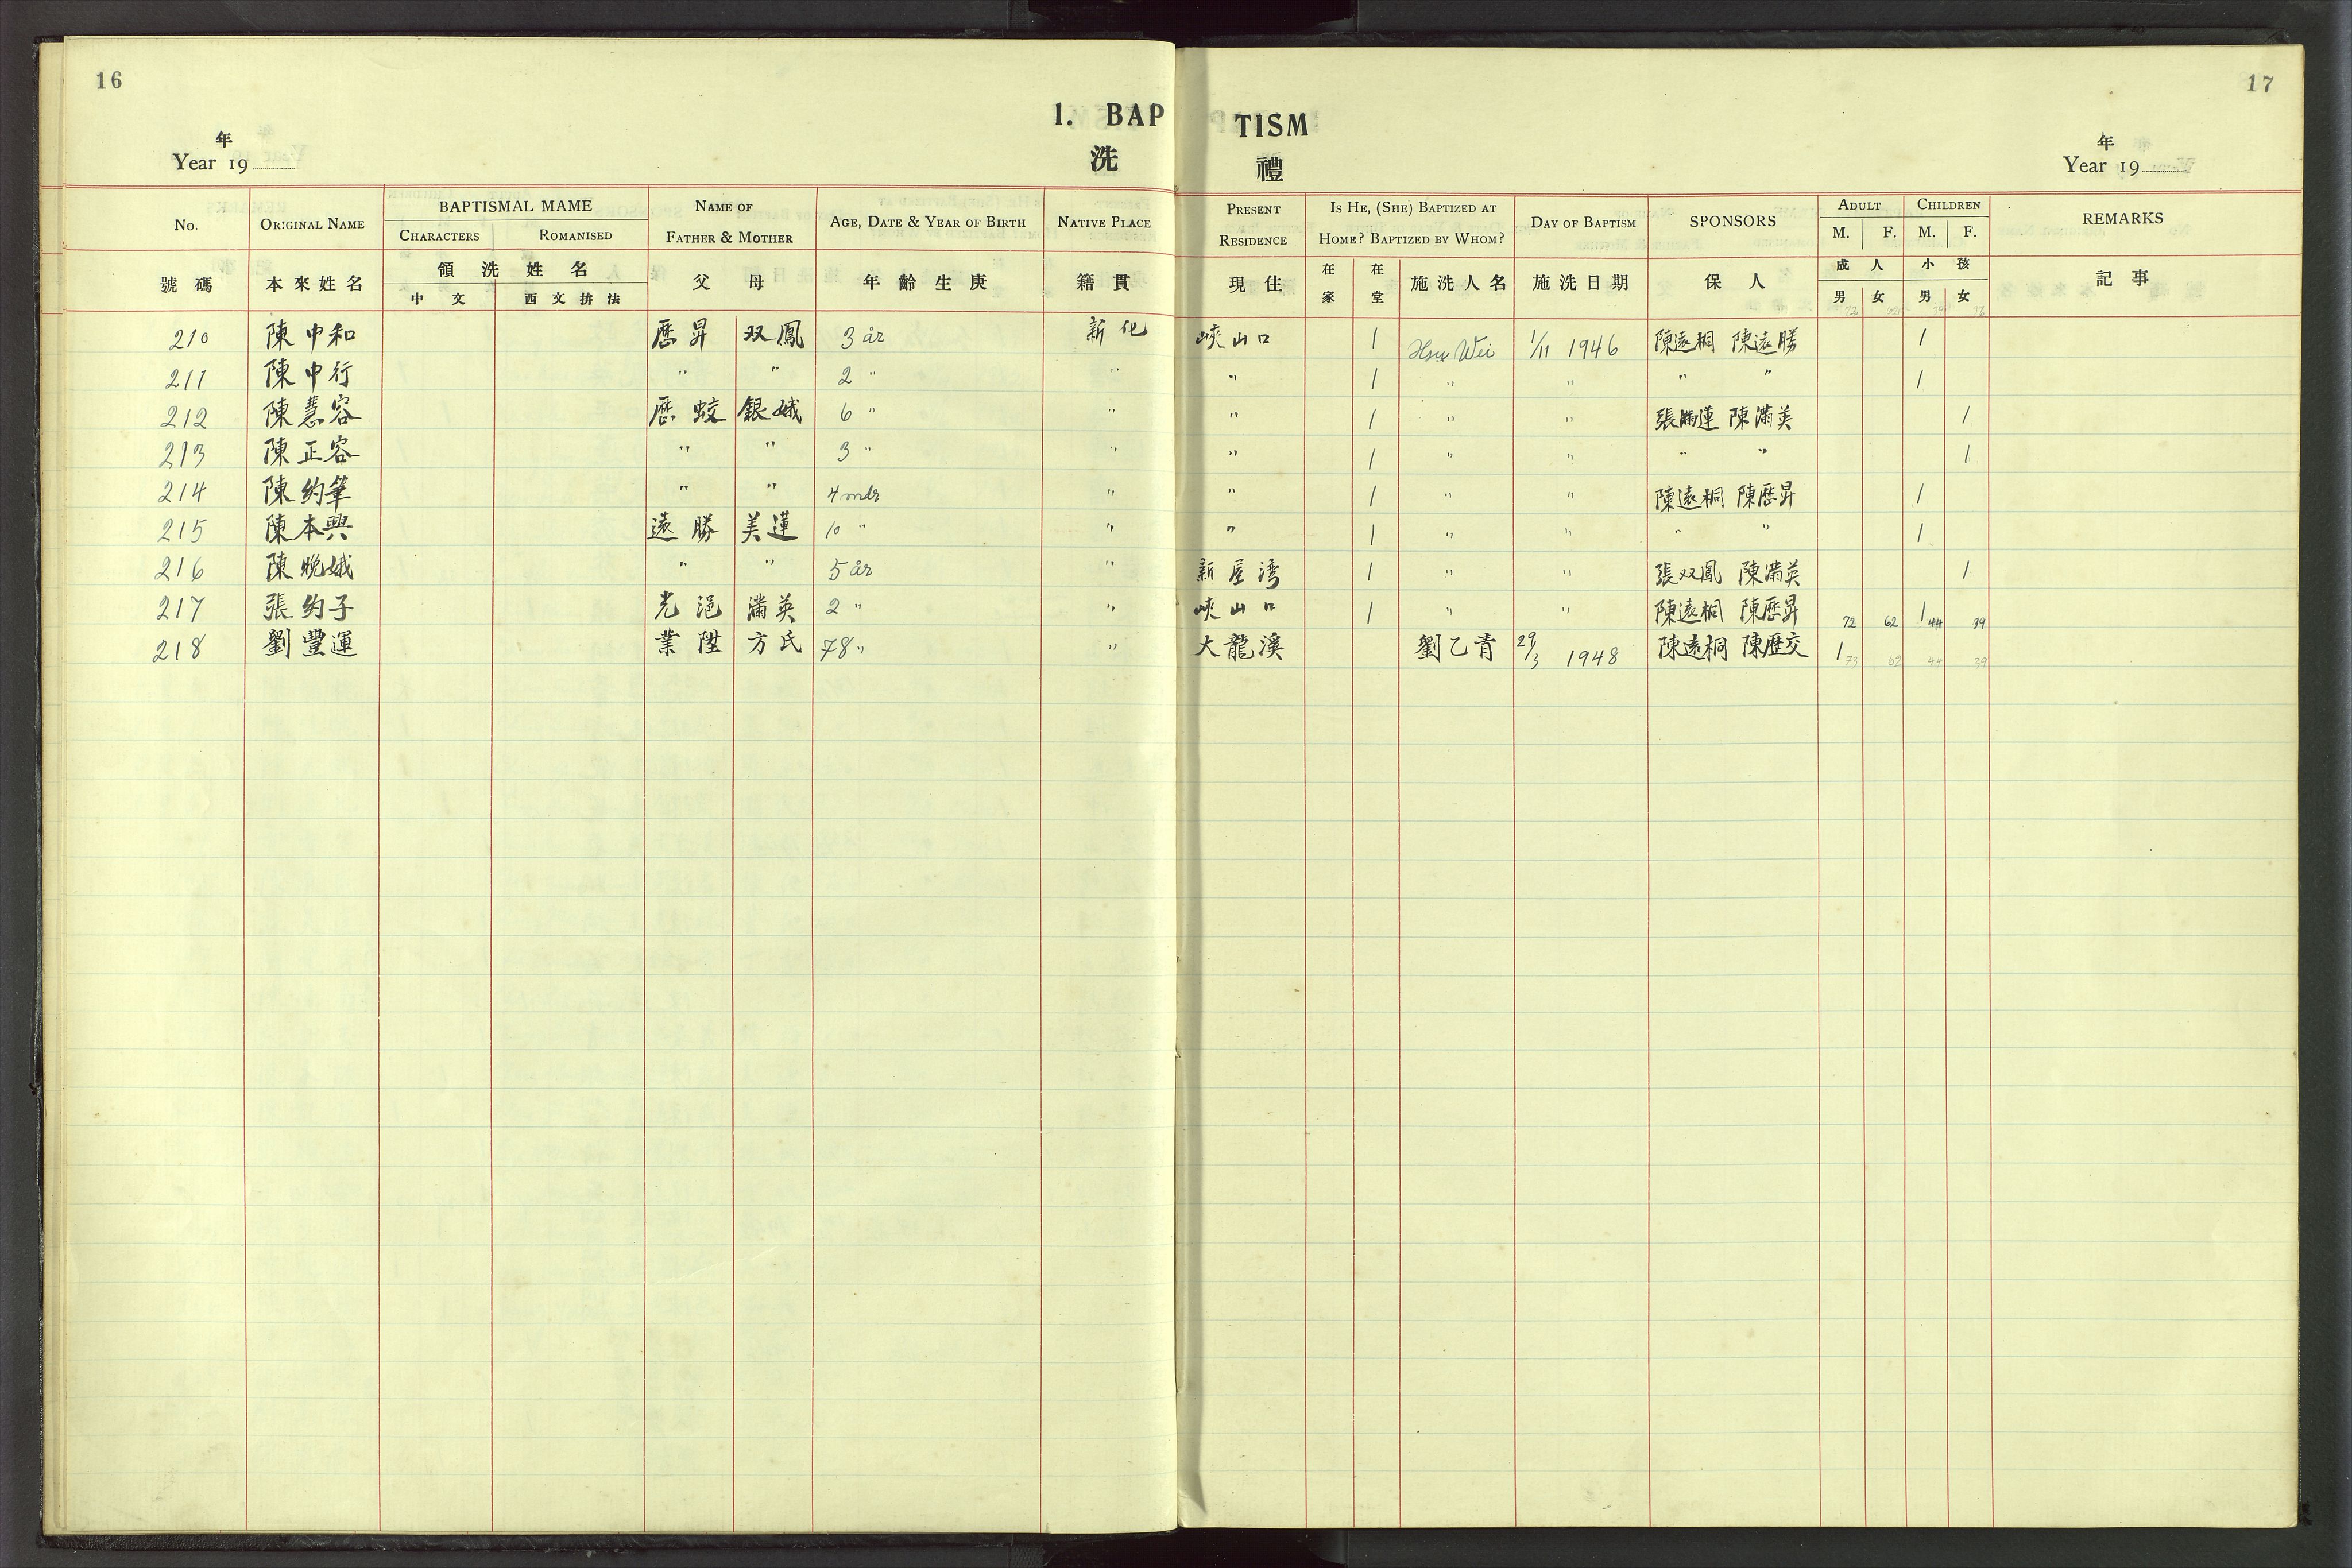 16
17
1. BAP TISM
洗 禮
年
Year 19
年
Year 19
No. ORIGINAL NAME BAPTISMAL MAME NAME OF FATHER & MOTHER AGE, DATE & YEAR OF BIRTH NATIVE PLACE PRESENT RESIDENCE IS HE, (SHE) BAPTIZED AT HOME? BAPTIZED BY WHOM? DAY OF BAPTISM SPONSORS ADULT CHILDREN REMARKS
CHARACTERS ROMANISED M. F. M. F.
號 碼 本來姓名 領 洗 姓 名 父 母 年 齡 生 庚 籍 貫 現 住 在家 在堂 施洗人名 施洗日期 保 人 成 人 小 孩 記 事
中 文 西文拚法 男 女 男 女
210 陳中和 歷昇 双鳳 3 år 新化 峽山口 1 Hsu Wei 1/11 1946 陳遠桐 陳遠勝 1
211 陳中行 " " 2 " " " 1 " " " " 1
212 陳慧容 歷蛟 銀娥 6 " " " 1 " " 張滿蓮 陳滿英 1
213 陳正容 " " 3 " " " 1 " " " " 1
214 陳約筆 " " 4 mdr " " 1 " " 陳遠桐 陳歷昇 1
215 陳本興 遠勝 美蓮 10 " " " 1 " " " " 1
216 陳晚娥 " " 5 år " 新屋湾 1 " " 張双鳳 陳滿英 1
217 張約子 光 滿英 2 " " 峽山口 1 " " 陳遠桐 陳歷昇 72 62 1 44 39
218 劉豐運 業陞 方氏 78 " " 大龍溪 劉乙青 29/3 1948 陳遠桐 陳歷交 1 73 62 44 39